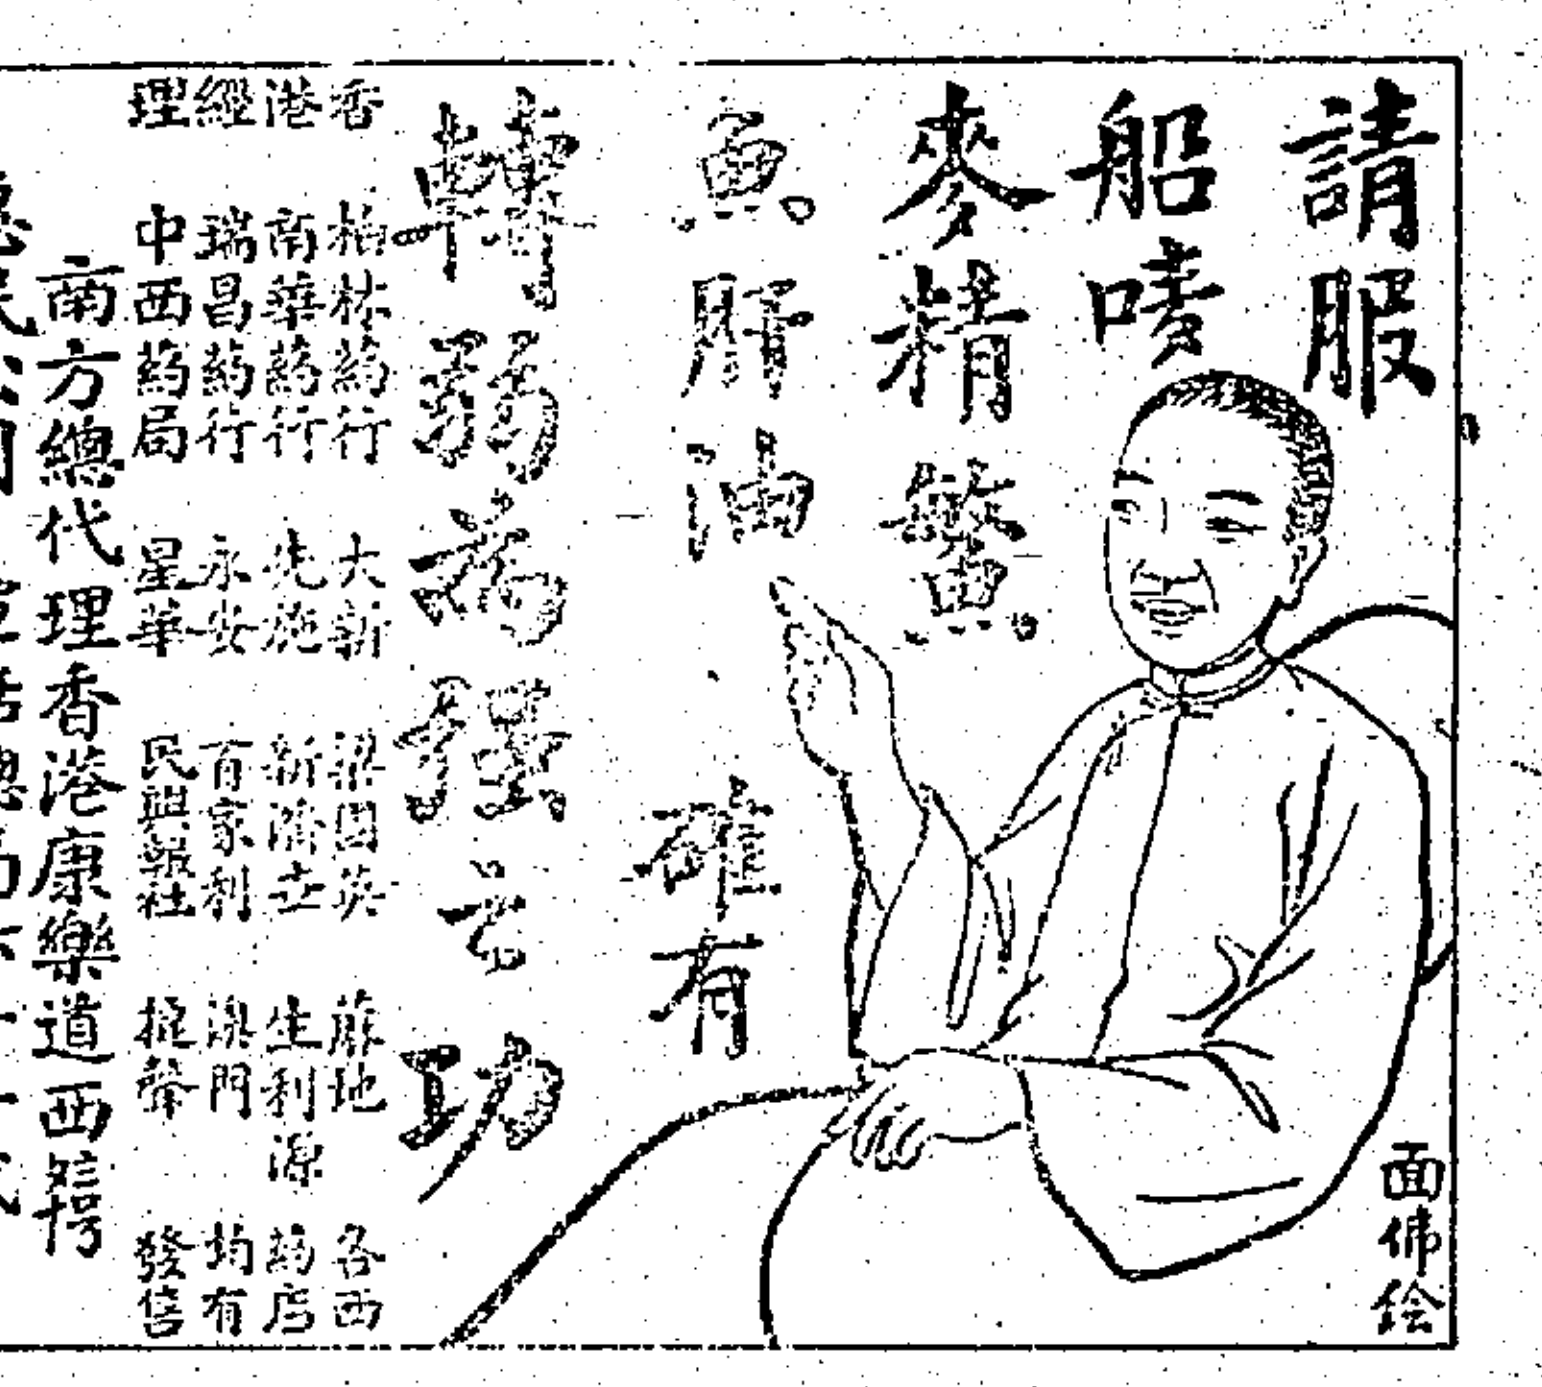 請服
船嘜
麥精鰵
魚肝油
確有
轉弱為强之功
香港經理
柏林葯行 大新 梁国英 蔴地 各西
南華葯行 先施 新濟世 生利源 葯店
瑞昌葯行 永安 百家利 澳門 均有
中西葯局 星華 民興報社 振聲 發售
南方總代理香港康樂道西
面佛绘